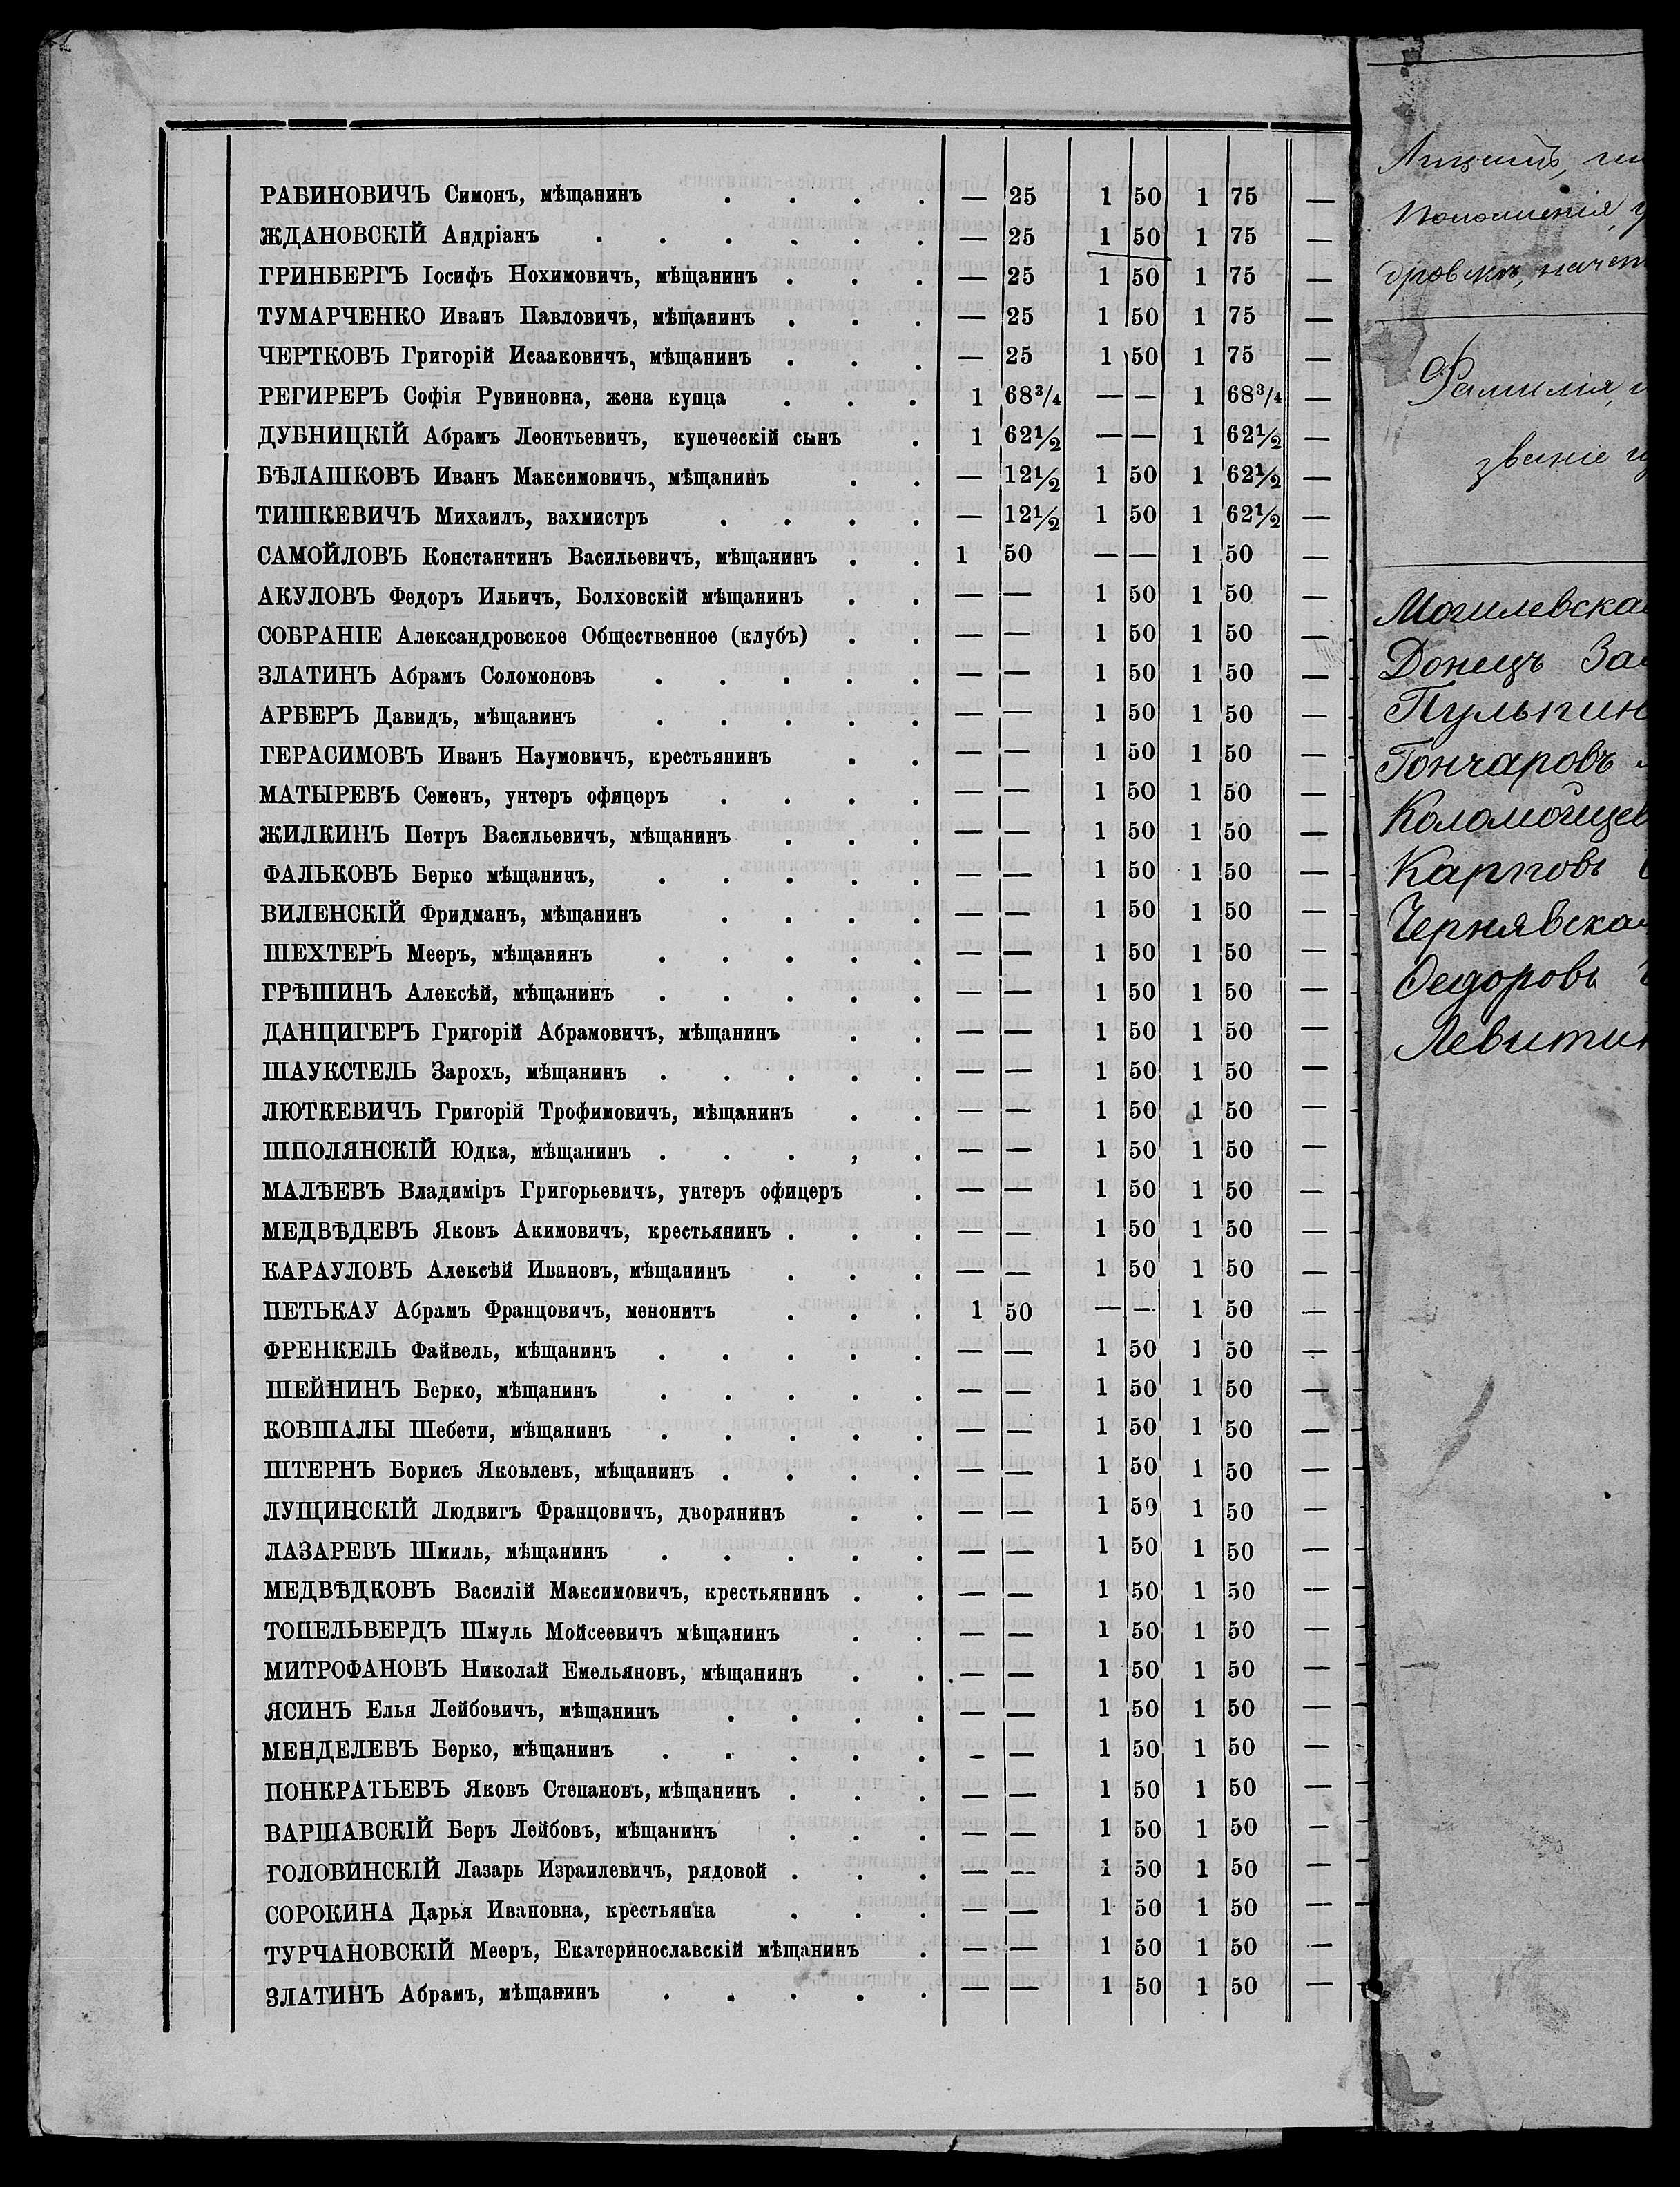 РАБИНОВИЧЪ Симонъ, мѣщанинъ . . . . — 25 1 50 1 75 —
ЖДАНОВСКІЙ Андріанъ . . . . . . — 25 1 50 1 75 —
ГРИНБЕРГЪ Іосифъ Нохимовичъ, мѣщанинъ . . . — 25 1 50 1 75 —
ТУМАРЧЕНКО Иванъ Павловичъ, мѣщанинъ . . . — 25 1 50 1 75 —
ЧЕРТКОВЪ Григорій Исааковичъ, мѣщанинъ . . . — 25 1 50 1 75 —
РЕГИРЕРЪ Софія Рувиновна, жена купца . . . 1 68³/₄ — — 1 68³/₄ —
ДУБНИЦКІЙ Абрамъ Леонтьевичъ, купеческій сынъ . 1 62½ — — 1 62½ —
БѢЛАШКОВЪ Иванъ Максимовичъ, мѣщанинъ . . — 12½ 1 50 1 62½ —
ТИШКЕВИЧЪ Михаилъ, вахмистръ . . . . — 12½ 1 50 1 62½ —
САМОЙЛОВЪ Константинъ Васильевичъ, мѣщанинъ . . 1 50 — — 1 50 —
АКУЛОВЪ Федоръ Ильичъ, Болховскій мѣщанинъ . . — — 1 50 1 50 —
СОБРАНІЕ Александровское Общественное (клубъ) . . — — 1 50 1 50 —
ЗЛАТИНЪ Абрамъ Соломоновъ . . . . . — — 1 50 1 50 —
АРБЕРЪ Давидъ, мѣщанинъ . . . . . — — 1 50 1 50 —
ГЕРАСИМОВЪ Иванъ Наумовичъ, крестьянинъ . . — — 1 50 1 50 —
МАТЫРЕВЪ Семенъ, унтеръ офицеръ . . . . — — 1 50 1 50 —
ЖИЛКИНЪ Петръ Васильевичъ, мѣщанинъ . . . — — 1 50 1 50 —
ФАЛЬКОВЪ Берко мѣщанинъ, . . . . . — — 1 50 1 50 —
ВИЛЕНСКІЙ Фридманъ, мѣщанинъ . . . . — — 1 50 1 50 —
ШЕХТЕРЪ Мееръ, мѣщанинъ . . . . . — — 1 50 1 50 —
ГРѢШИНЪ Алексѣй, мѣщанинъ . . . . . — — 1 50 1 50 —
ДАНЦИГЕРЪ Григорій Абрамовичъ, мѣщанинъ . . — — 1 50 1 50 —
ШАУКСТЕЛЬ Зарохъ, мѣщанинъ . . . . . — — 1 50 1 50 —
ЛЮТКЕВИЧЪ Григорій Трофимовичъ, мѣщанинъ . . — — 1 50 1 50 —
ШПОЛЯНСКІЙ Юдка, мѣщанинъ . . . , . — — 1 50 1 50 —
МАЛѢЕВЪ Владиміръ Григорьевичъ, унтеръ офицеръ . — — 1 50 1 50 —
МЕДВѢДЕВЪ Яковъ Акимовичъ, крестьянинъ . . . — — 1 50 1 50 —
КАРАУЛОВЪ Алексѣй Ивановъ, мѣщанинъ . . . — — 1 50 1 50 —
ПЕТЬКАУ Абрамъ Францовичъ, менонитъ . . . 1 50 — — 1 50 —
ФРЕНКЕЛЬ Файвель, мѣщанинъ . . . . . — — 1 50 1 50 —
ШЕЙНИНЪ Берко, мѣщанинъ . . . . . — — 1 50 1 50 —
КОВШАЛЫ Шебети, мѣщанинъ . . . . . — — 1 50 1 50 —
ШТЕРНЪ Борисъ Яковлевъ, мѣщанинъ . . . . — — 1 50 1 50 —
ЛУЩИНСКІЙ Людвигъ Францовичъ, дворянинъ . . — — 1 50 1 50 —
ЛАЗАРЕВЪ Шмиль, мѣщанинъ . . . . . — — 1 50 1 50 —
МЕДВѢДКОВЪ Василій Максимовичъ, крестьянинъ . . — — 1 50 1 50 —
ТОПЕЛЬВЕРДЪ Шмуль Мойсеевичъ мѣщанинъ . . — — 1 50 1 50 —
МИТРОФАНОВЪ Николай Емельяновъ, мѣщанинъ . . — — 1 50 1 50 —
ЯСИНЪ Елья Лейбовичъ, мѣщанинъ . . . . — — 1 50 1 50 —
МЕНДЕЛЕВЪ Берко, мѣщанинъ . . . . . — — 1 50 1 50 —
ПОНКРАТЬЕВЪ Яковъ Степановъ, мѣщанинъ . . . — — 1 50 1 50 —
ВАРШАВСКІЙ Беръ Лейбовъ, мѣщанинъ . . . — — 1 50 1 50 —
ГОЛОВИНСКІЙ Лазарь Израилевичъ, рядовой . . . — — 1 50 1 50 —
СОРОКИНА Дарья Ивановна, крестьянка . . . — — 1 50 1 50 —
ТУРЧАНОВСКІЙ Мееръ, Екатеринославскій мѣщанинъ . — — 1 50 1 50 —
ЗЛАТИНЪ Абрамъ, мѣщанинъ . . . . . — — 1 50 1 50 —
Фамилія,
званіе
Могилевская
Донецъ За
Пулькин
Гончаровъ
Коломойцев
Карповъ
Чернявская
Федоровъ
Левитин